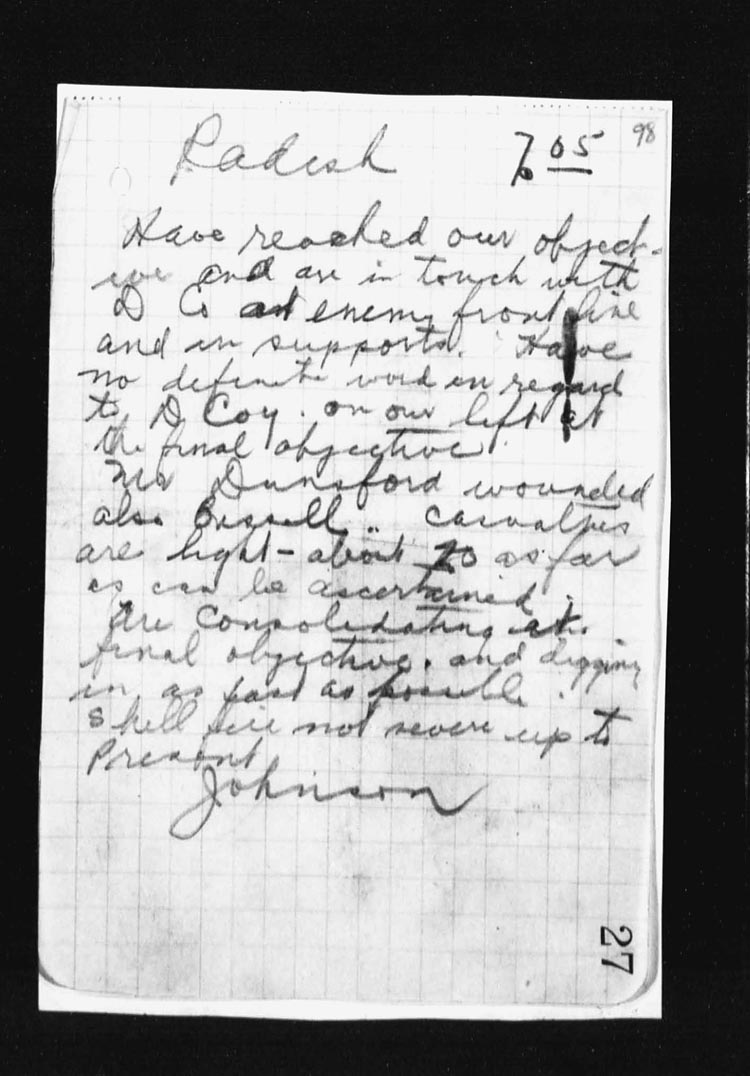 98
Radish 7.05
Have reached our object-
ive and are in touch with
D Co at enemy front line
and in supports. Have
no definite word in regard
to D Coy. on our left at
the final objective.
Mr Dunsford wounded
also Bissell .. Casualties
are light - about 20 as far
as can be ascertained.
Are Consolidating at
final objective. and digging
in as fast as possible.
Shell fire not severe up to
Present
Johnson
27